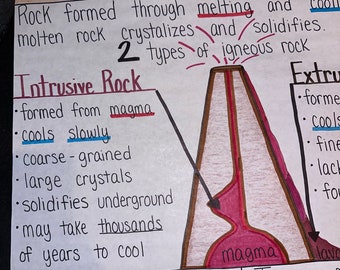 Rock formed through melting and
molten rock crystalizes and solidifies.
2 types of igneous rock
Intrusive Rock
• formed from magma
• cools slowly
• coarse-grained
• large crystals
• solidifies underground
• may take thousands
of years to cool
magma
Extru
• forme
• cools
• fine
lack